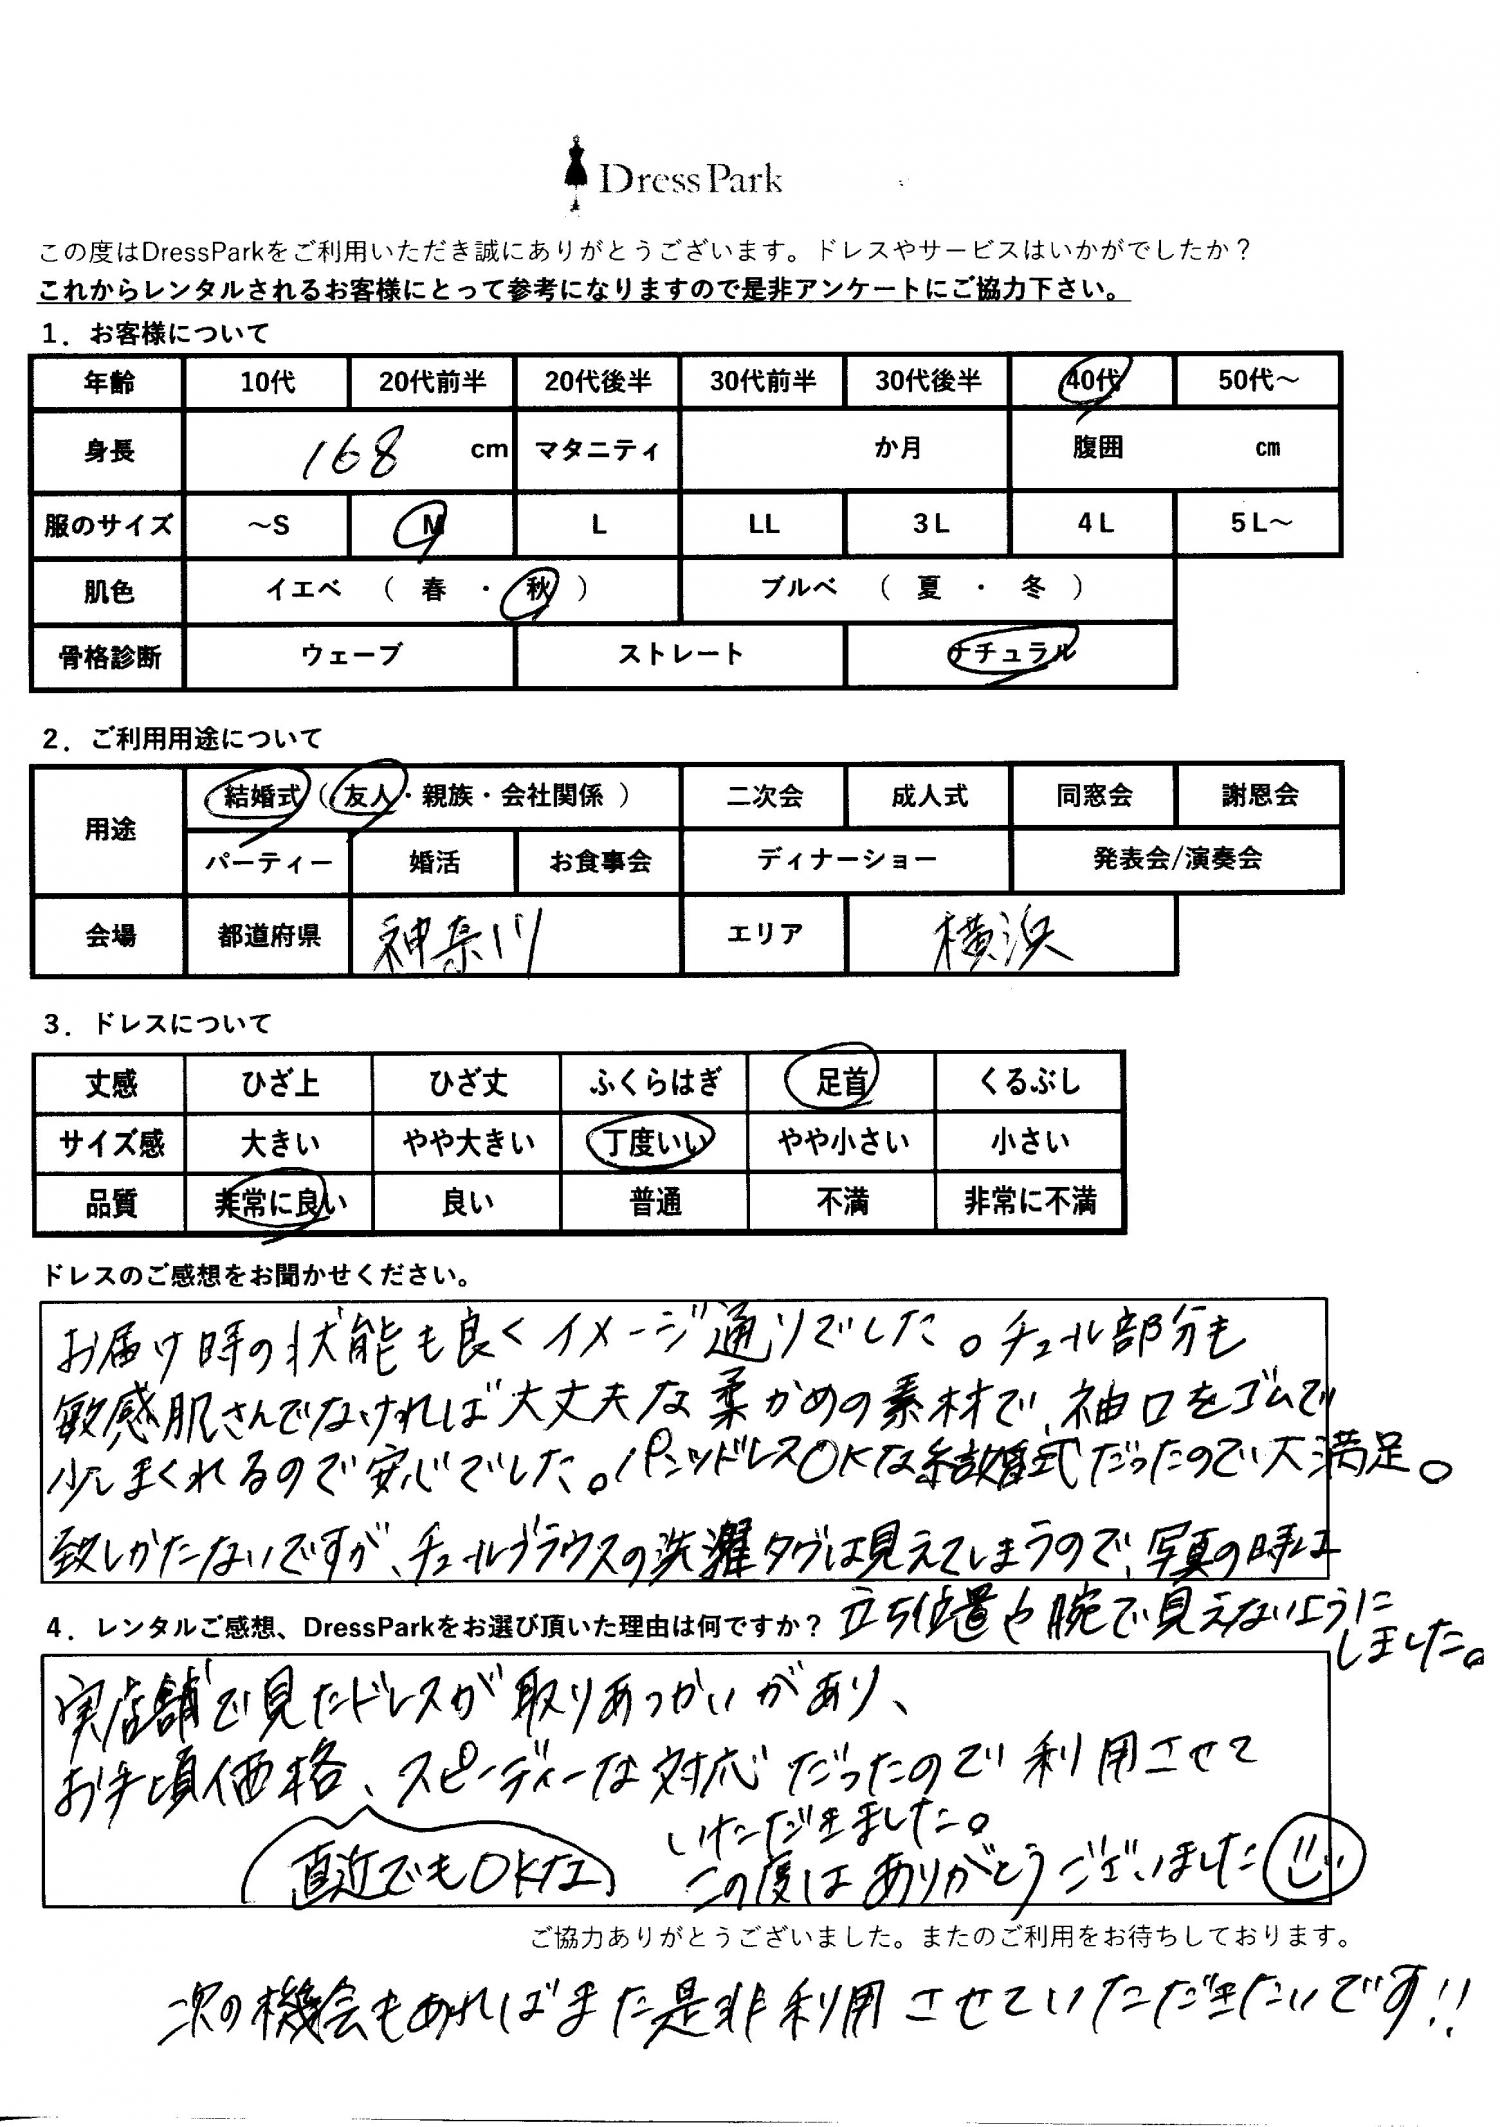 DressPark
この度はDressParkをご利用いただき誠にありがとうございます。ドレスやサービスはいかがでしたか？
これからレンタルされるお客様にとって参考になりますので是非アンケートにご協力下さい。
1．お客様について
年齢 10代 20代前半 20代後半 30代前半 30代後半 40代 50代～
身長 168 cm マタニティ か月 腹囲 cm
服のサイズ ～S M L LL 3L 4L 5L～
肌色 イエベ （ 春 ・ 秋 ） ブルベ （ 夏 ・ 冬 ）
骨格診断 ウェーブ ストレート ナチュラル
2．ご利用用途について
用途 結婚式（ 友人・親族・会社関係 ） 二次会 成人式 同窓会 謝恩会
パーティー 婚活 お食事会 ディナーショー 発表会/演奏会
会場 都道府県 神奈川 エリア 横浜
3．ドレスについて
丈感 ひざ上 ひざ丈 ふくらはぎ 足首 くるぶし
サイズ感 大きい やや大きい 丁度いい やや小さい 小さい
品質 非常に良い 良い 普通 不満 非常に不満
ドレスのご感想をお聞かせください。
お届け時の状態も良くイメージ通りでした。チュール部分も
敏感肌さんでなければ大丈夫な柔かめの素材で、袖口をゴムで
少しまくれるので安心でした。パンツドレスOKな結婚式だったので大満足。
致しかたないですが、チュールブラウスの洗濯タグは見えてしまうので、写真の時は
立ち位置や腕で見えないように
しました。
4．レンタルご感想、DressParkをお選び頂いた理由は何ですか？
実店舗で見たドレスが取りあつかいがあり、
お手頃価格、スピーディーな対応だったので利用させて
いただきました。
直近でもOKな
この度はありがとうございました
ご協力ありがとうございました。またのご利用をお待ちしております。
次の機会もあればまた是非利用させていただきたいです!!